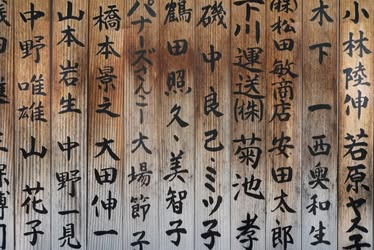 小林陸伸 若原ヤス子
木下 一 西奥和生
㈱松田敏商店 安田太郎
下川運送㈱ 菊池 孝
磯 中良己・ミツ子
鶴田照久・美智子
パナーズさんこー 大場節子
橋本景之 大田伸一
山本岩生 中野一見
中野唯雄 山 花子